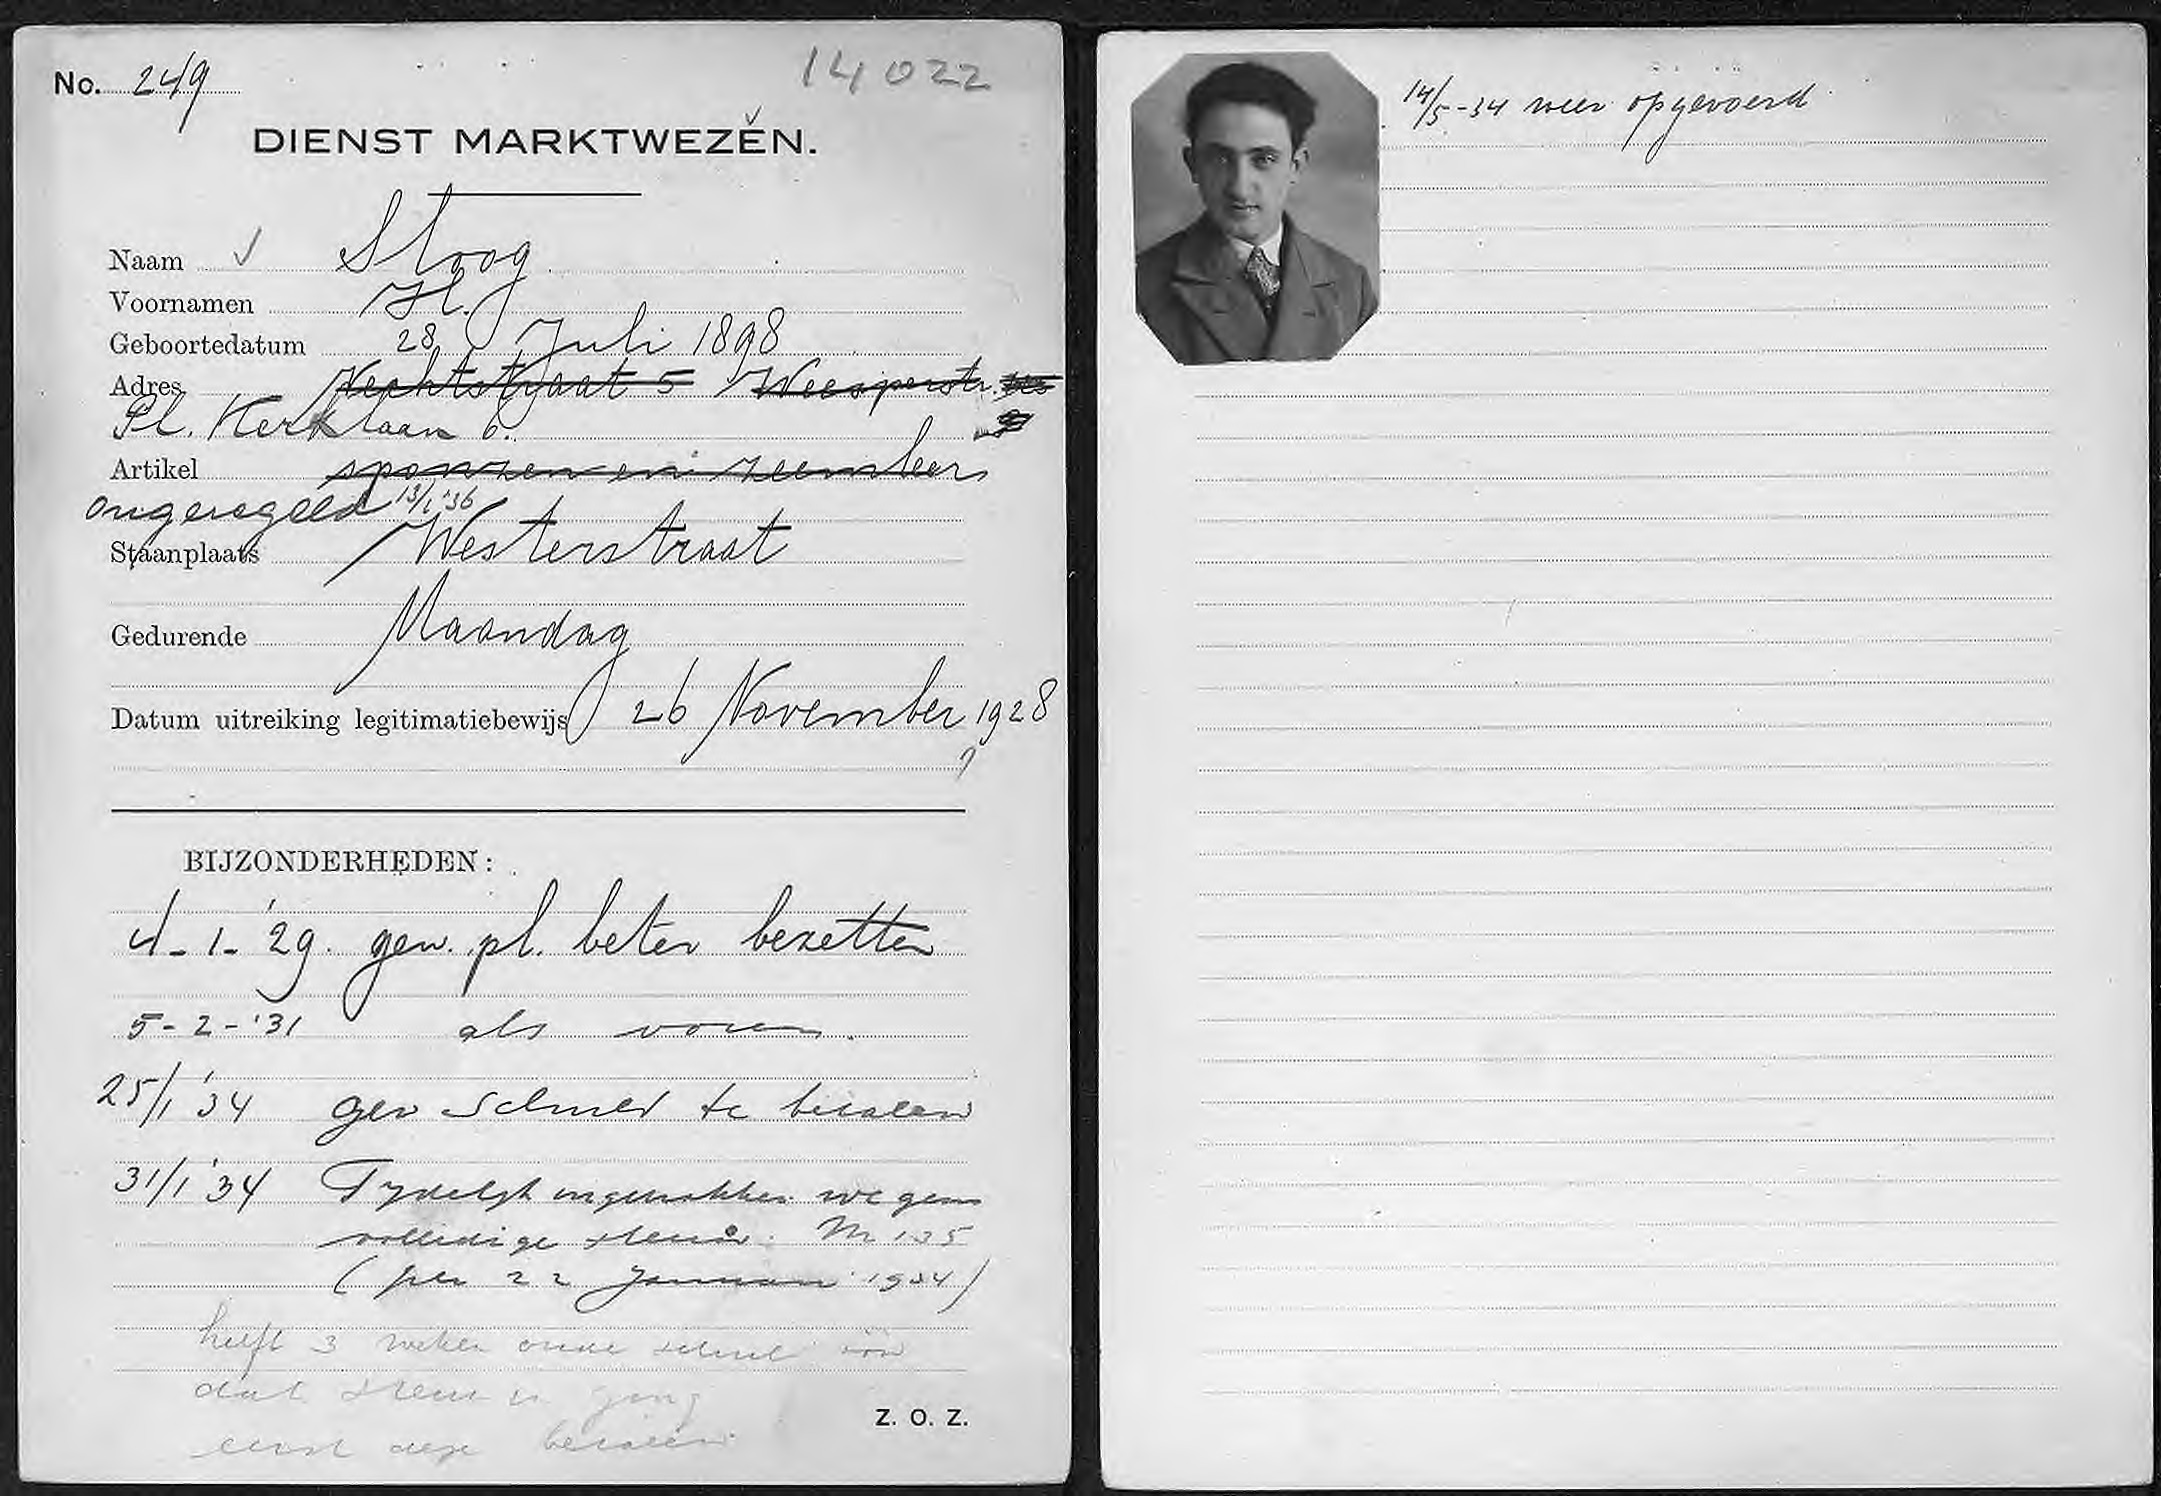 No. 249
14022
DIENST MARKTWEZEN.
Naam Sloog
Voornamen H.
Geboortedatum 28 Juli 1898
Adres Vechtstraat 5 Weesperstr.
Pl. Kerklaan 6.
Artikel sponzen en zeemleer
ongeregeld 13/1 '36
Staanplaats Westerstraat
Gedurende Maandag
Datum uitreiking legitimatiebewijs 26 November 1928
BIJZONDERHEDEN:
4-1-'29. gew. pl. beter bezetten
5-2-'31 als voren.
25/1 '34 gew schuld te betalen
31/1 '34 Tydelyk ingetrokken wegens
volledige steun. M 135
(per 22 Januari 1934)
heeft 3 weken oude schuld vóór
dat steun in ging
eerst deze betalen
Z. O. Z.
14/5-34 weer opgevoerd